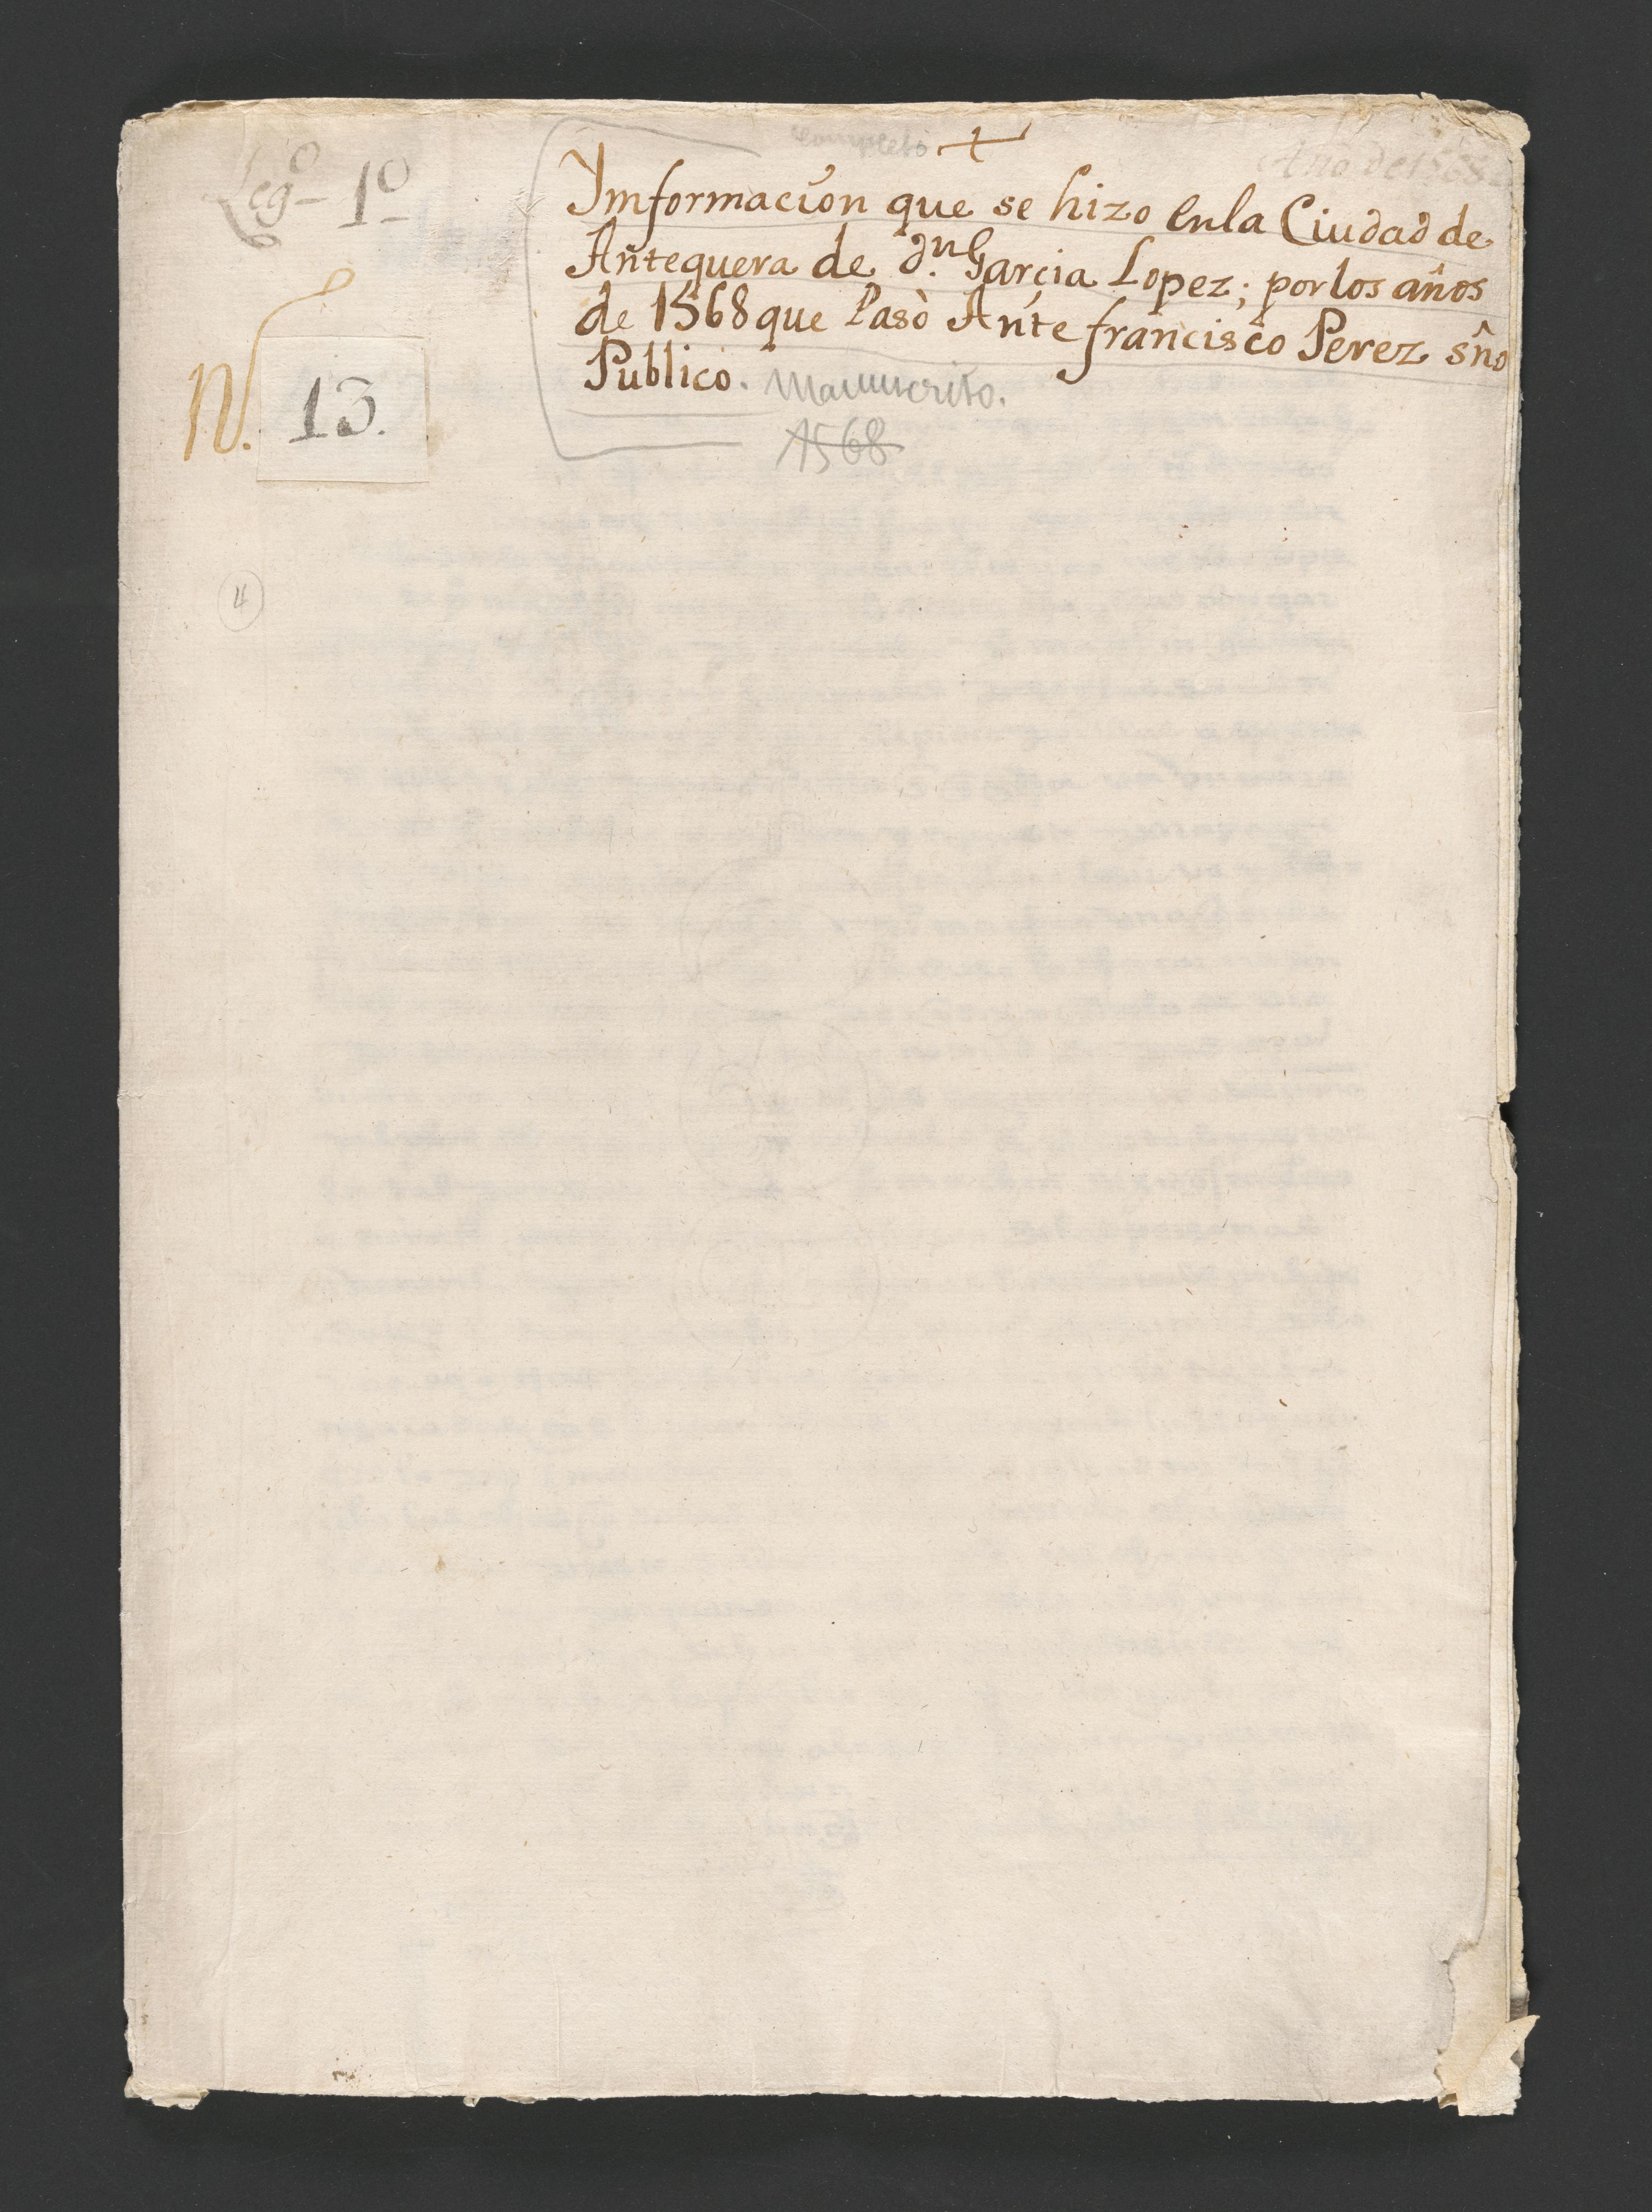 Legº 1º
completo
Año de 1568
Ymformacion que se hizo en la Ciudad de
Antequera de dn. Garcia Lopez; por los años
de 1568 que Pasò Ante francisco Perez sño
Publico. Manuscrito.
1568
N. 13.
4